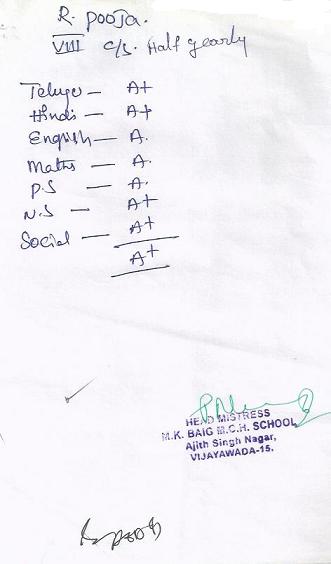 R. Pooja.
VIII C/s. Half yearly
Telugu — A+
Hindi — A+
English — A.
Maths — A.
P.S — A.
N.S — A+
Social — A+
A+
HEAD MISTRESS
M.K. BAIG M.C.H. SCHOOL
Ajith Singh Nagar,
VIJAYAWADA-15.